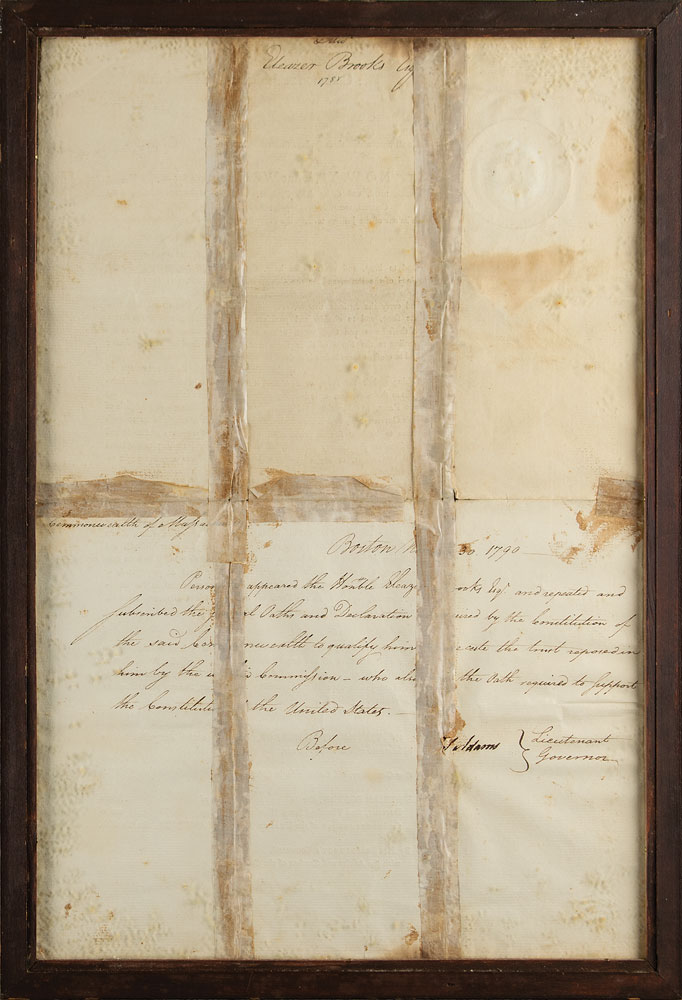 Eleazer Brooks Esq
1788
Commonwealth of Massa
Boston 30 1790
Perso appeared the Honble Eleaz ooks Esqr and repeated and
Subscribed the l Oaths and Declaration ired by the Constitution of
the said Co nwealth to qualify him cute the trust reposed in
him by the Commission – who als the Oath required to Support
the Constituti the United States. —
Before S. Adams } Lieutenant
Governor